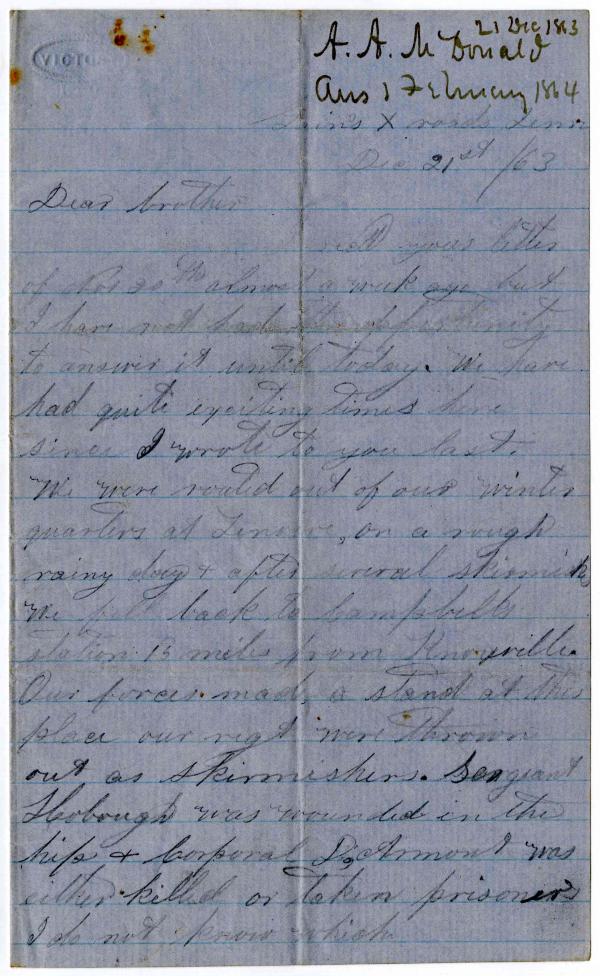 VICTO
21 Dec 1863
A. A. McDonald
Ans 1 February 1864
X roads Tenn
Dec 21st /63
Dear brother
I recd your letter
of Nov 20th almost a week ago but
I have not had an opportunity
to answer it until today. We have
had quite exciting times here
since I wrote to you last.
We were routed out of our winter
quarters at Lenore, on a rough
rainy day & after several skirmishes
We fell back to Campbells
station 15 miles from Knoxville.
Our forces made a stand at this
place our regt were thrown
out as skirmishers. Sergeant
was wounded in the
hip & Corporal DeArmont was
either killed or taken prisoners
I do not know which